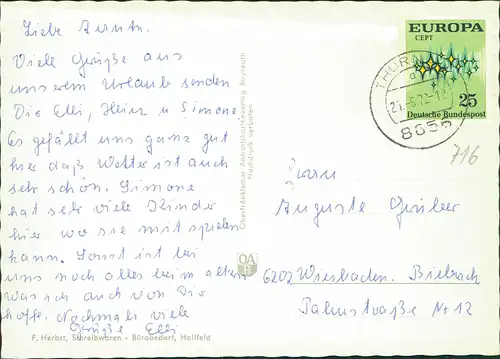 Liebe
Viele Grüße aus
unserem Urlaub senden
Dir Elli, Heinz u Simone
Es gefällt uns ganz gut
hier daß Wetter ist auch
sehr schön. Simone
hat sehr viele Kinder
hier wo sie mit spielen
kann. Sonst ist bei
uns noch alles beim alten
was ich auch von Dir
hoffe. Nochmals viele
Grüße Elli
F. Herbst, Schreibwaren - Bürobedarf, Hollfeld
Oberfränkischer Ansichtskartenverlag Bayreuth
Nachdruck verboten
OA
B
EUROPA
CEPT
25
Deutsche Bundespost
THURN
8656
716
Auguste Gruber
6202 Wiesbaden. Biebrach
Palmstraße Nr 12